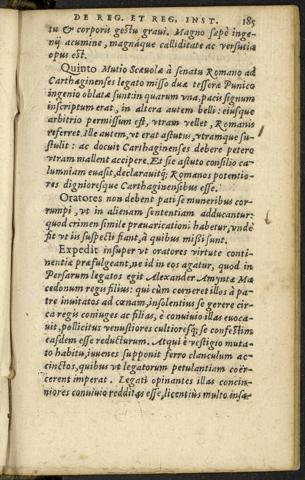 DE REG. ET REG. INST. 185
tu & corporis gestu graui. Magno sæpè inge-
nij acumine, magnáque calliditate ac versutia
opus est.
Quinto Mutio Scæuola à senatu Romano ad
Carthaginenses legato misso duæ tesseræ Punico
ingenio oblatæ sunt in quarum vna, pacis signum
inscriptum erat, in altera autem belli: eiusque
arbitrio permissum est, vtram vellet, Romanis
referret. Ille autem, vt erat astutus, vtramque su-
stulit: ac docuit Carthaginenses debere petere
vtram mallent accipere. Et sic astuto consilio ca-
lumniam euasit, declarauitq; Romanos potentio-
res digniorésque Carthaginensibus esse.
Oratores non debent pati se muneribus cor-
rumpi, vt in alienam sententiam adducantur:
quod crimen simile præuaricationi habetur, vnde
fit vt iis suspecti fiant, à quibus missi sunt.
Expedit insuper vt oratores virtute conti-
nentiæ præfulgeant, ne id in eos agatur, quod in
Persarum legatos egit Alexander Amyntæ Ma
cedonum regis filius: qui cùm cerneret illos à pa-
tre inuitatos ad cœnam, insolentius se gerere cir-
ca regis coniuges ac filias, è conuiuio illas euoca-
uit, pollicitus venustiores cultiorésq; se confestim
easdem esse reducturum. Atqui è vestigio muta-
to habitu, iuuenes supponit ferro clanculum ac
cinctos, quibus vt legatorum petulantiam coër-
cerent imperat. Legati opinantes illas concin-
niores conuiuio redditas esse, licentius multo insa-